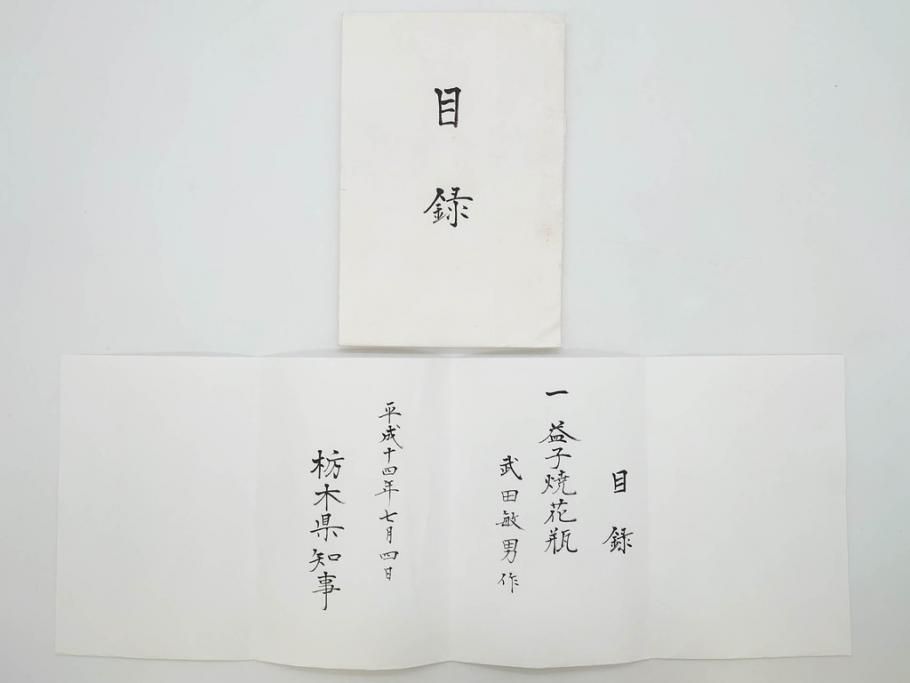 目録
目録
一 益子焼花瓶
武田敏男作
平成十四年七月四日
栃木県知事